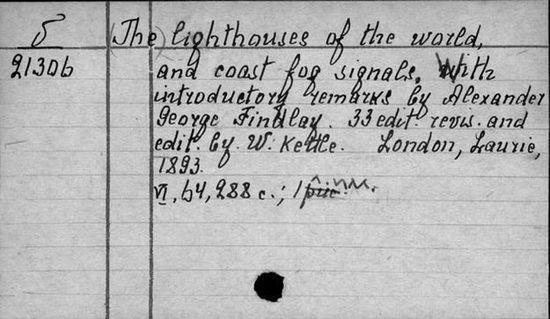 5 (The) lighthouses of the world,
2130b and coast fog signals. With
introductory remarks by Alexander
George Findlay. 33 edit. revis. and
edit. by W. Kettle. London, Laurie,
1893.
VI, 64, 288 c.; 1